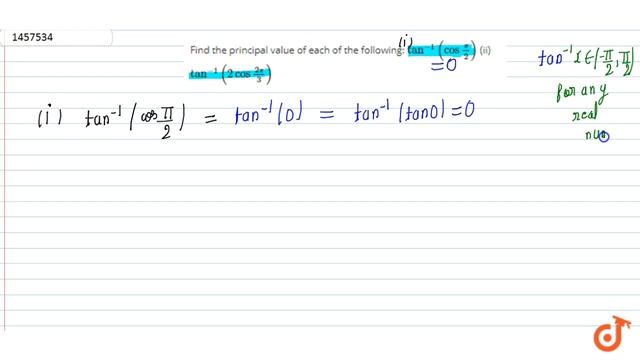 1457534
Find the principal value of each of the following: (i) tan⁻¹(cos π/2) (ii)
= 0
tan⁻¹(2 cos 2π/3)
tan⁻¹ x ∈ (-π/2, π/2)
for any
real
(i) tan⁻¹(cos π/2) = tan⁻¹(0) = tan⁻¹(tan0) = 0